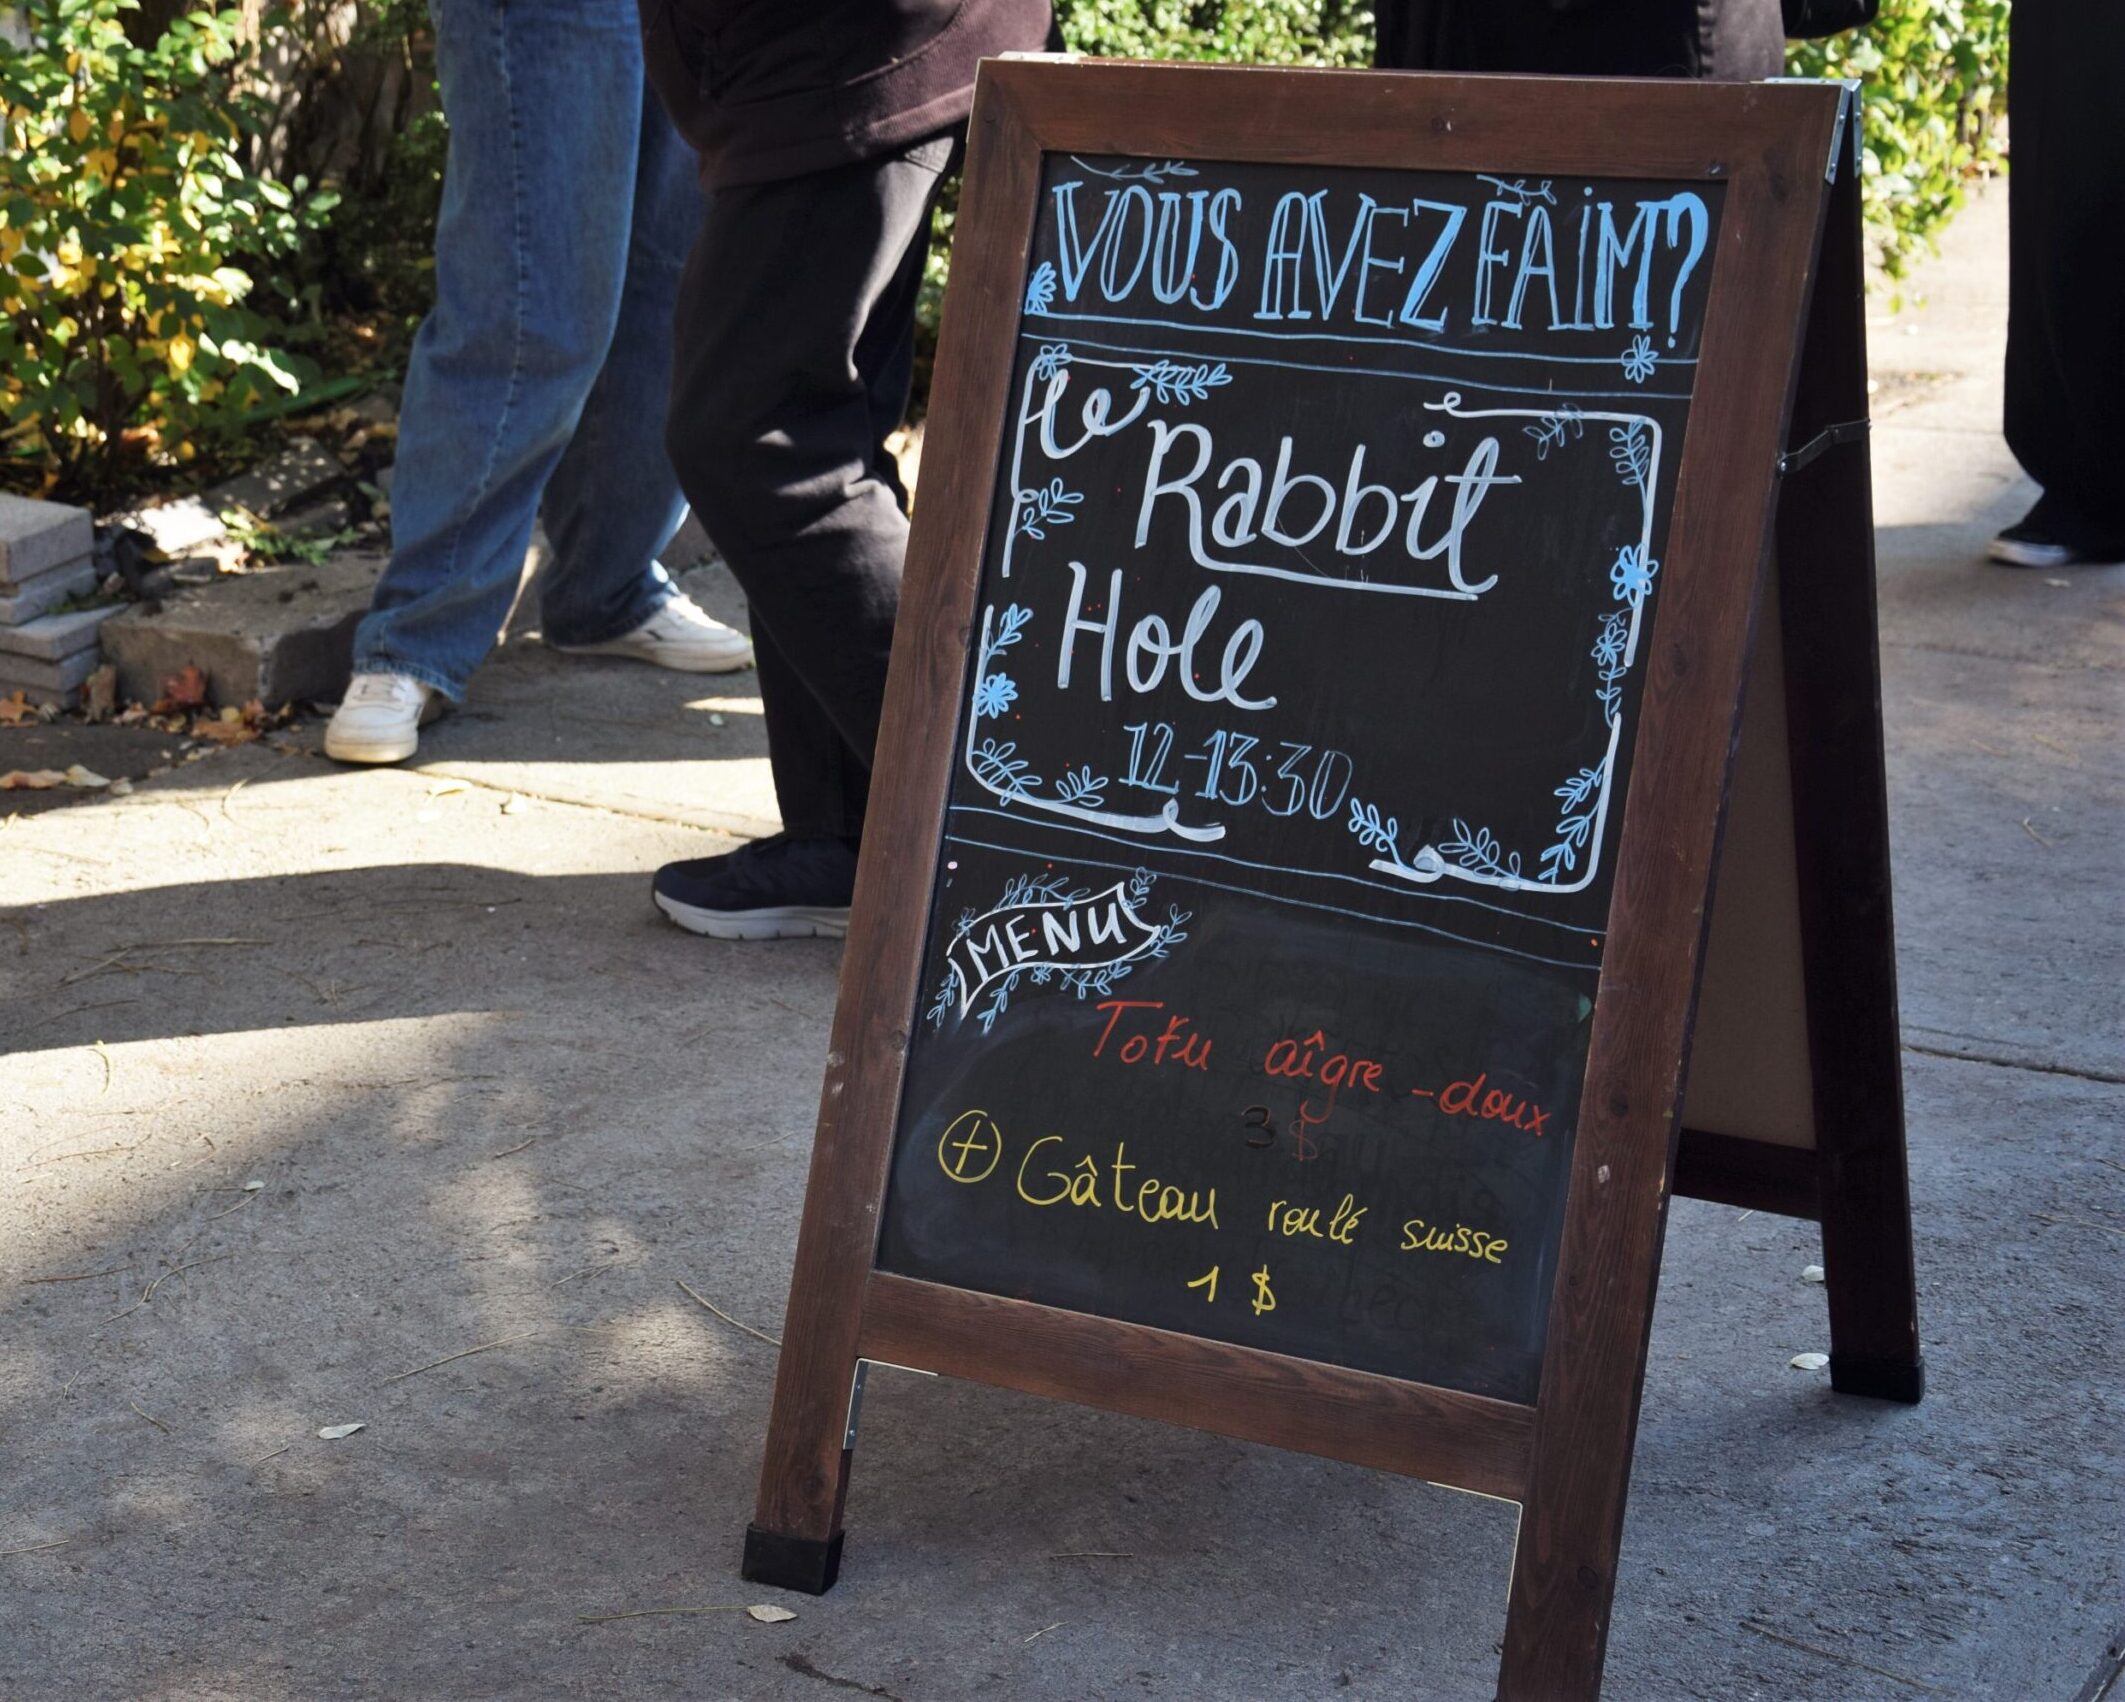 VOUS AVEZ FAIM?
le Rabbit
Hole
12-13:30
MENU
Tofu aîgre-doux
3 $
+ Gâteau roulé suisse
1 $